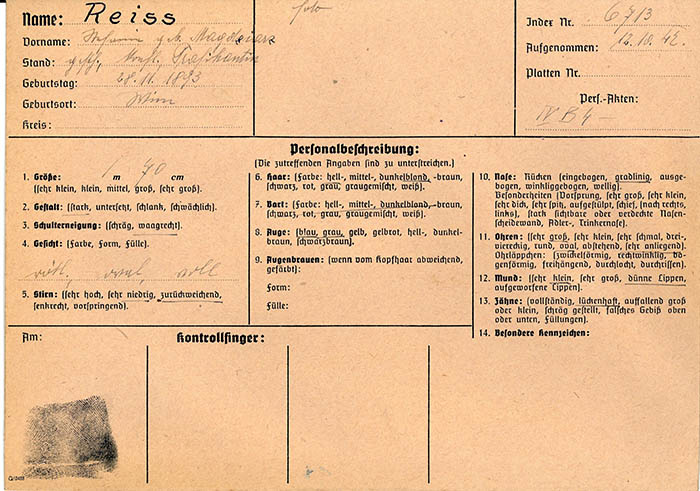 Name: Reiss
Vorname: Stefanie geb. Magdziarz
Stand: gesch., konf.
Geburtstag: 28.11.1893
Geburtsort: Wien
Kreis:
foto
Index Nr. 6713
Aufgenommen: 12.10.42.
Platten Nr.
Pers.-Akten:
IV B 4 -
Personalbeschreibung:
(Die zutreffenden Angaben sind zu unterstreichen.)
1. Größe: 1 m 70 cm
(sehr klein, klein, mittel, groß, sehr groß).
2. Gestalt: (stark, untersetzt, schlank, schwächlich).
3. Schulterneigung: (schräg, waagrecht).
4. Gesicht: (Farbe, Form, Fülle).
rötl, oval, voll
5. Stirn: (sehr hoch, sehr niedrig, zurückweichend,
senkrecht, vorspringend).
6. Haar: (Farbe: hell-, mittel-, dunkelblond, -braun,
schwarz, rot, grau, graugemischt, weiß).
7. Bart: (Farbe: hell-, mittel-, dunkelblond, -braun,
schwarz, rot, grau, graugemischt, weiß).
8. Auge: (blau, grau, gelb, gelbrot, hell-, dunkel-
braun, schwarzbraun).
9. Augenbrauen: (wenn vom Kopfhaar abweichend,
gefärbt):
Form:
Fülle:
10. Nase: Rücken (eingebogen, gradlinig, ausge-
bogen, winkliggebogen, wellig).
Besonderheiten (Vorsprung, sehr groß, sehr klein,
sehr dick, sehr spitz, aufgestülpt, schief, [nach rechts,
links], stark sichtbare oder verdeckte Nasen-
scheidewand, Adler-, Trinkernase).
11. Ohren: (sehr groß, sehr klein, sehr schmal, drei-
viereckig, rund, oval, abstehend, sehr anliegend).
Ohrläppchen: (zwickelförmig, rechtwinklig, bo-
genförmig, freihängend, durchlocht, durchrissen).
12. Mund: (sehr klein, sehr groß, dünne Lippen,
aufgeworfene Lippen).
13. Zähne: (vollständig, lückenhaft, auffallend groß
oder klein, schräg gestellt, falsches Gebiß oben
oder unten, Füllungen).
14. Besondere Kennzeichen:
Am:
Kontrollfinger: